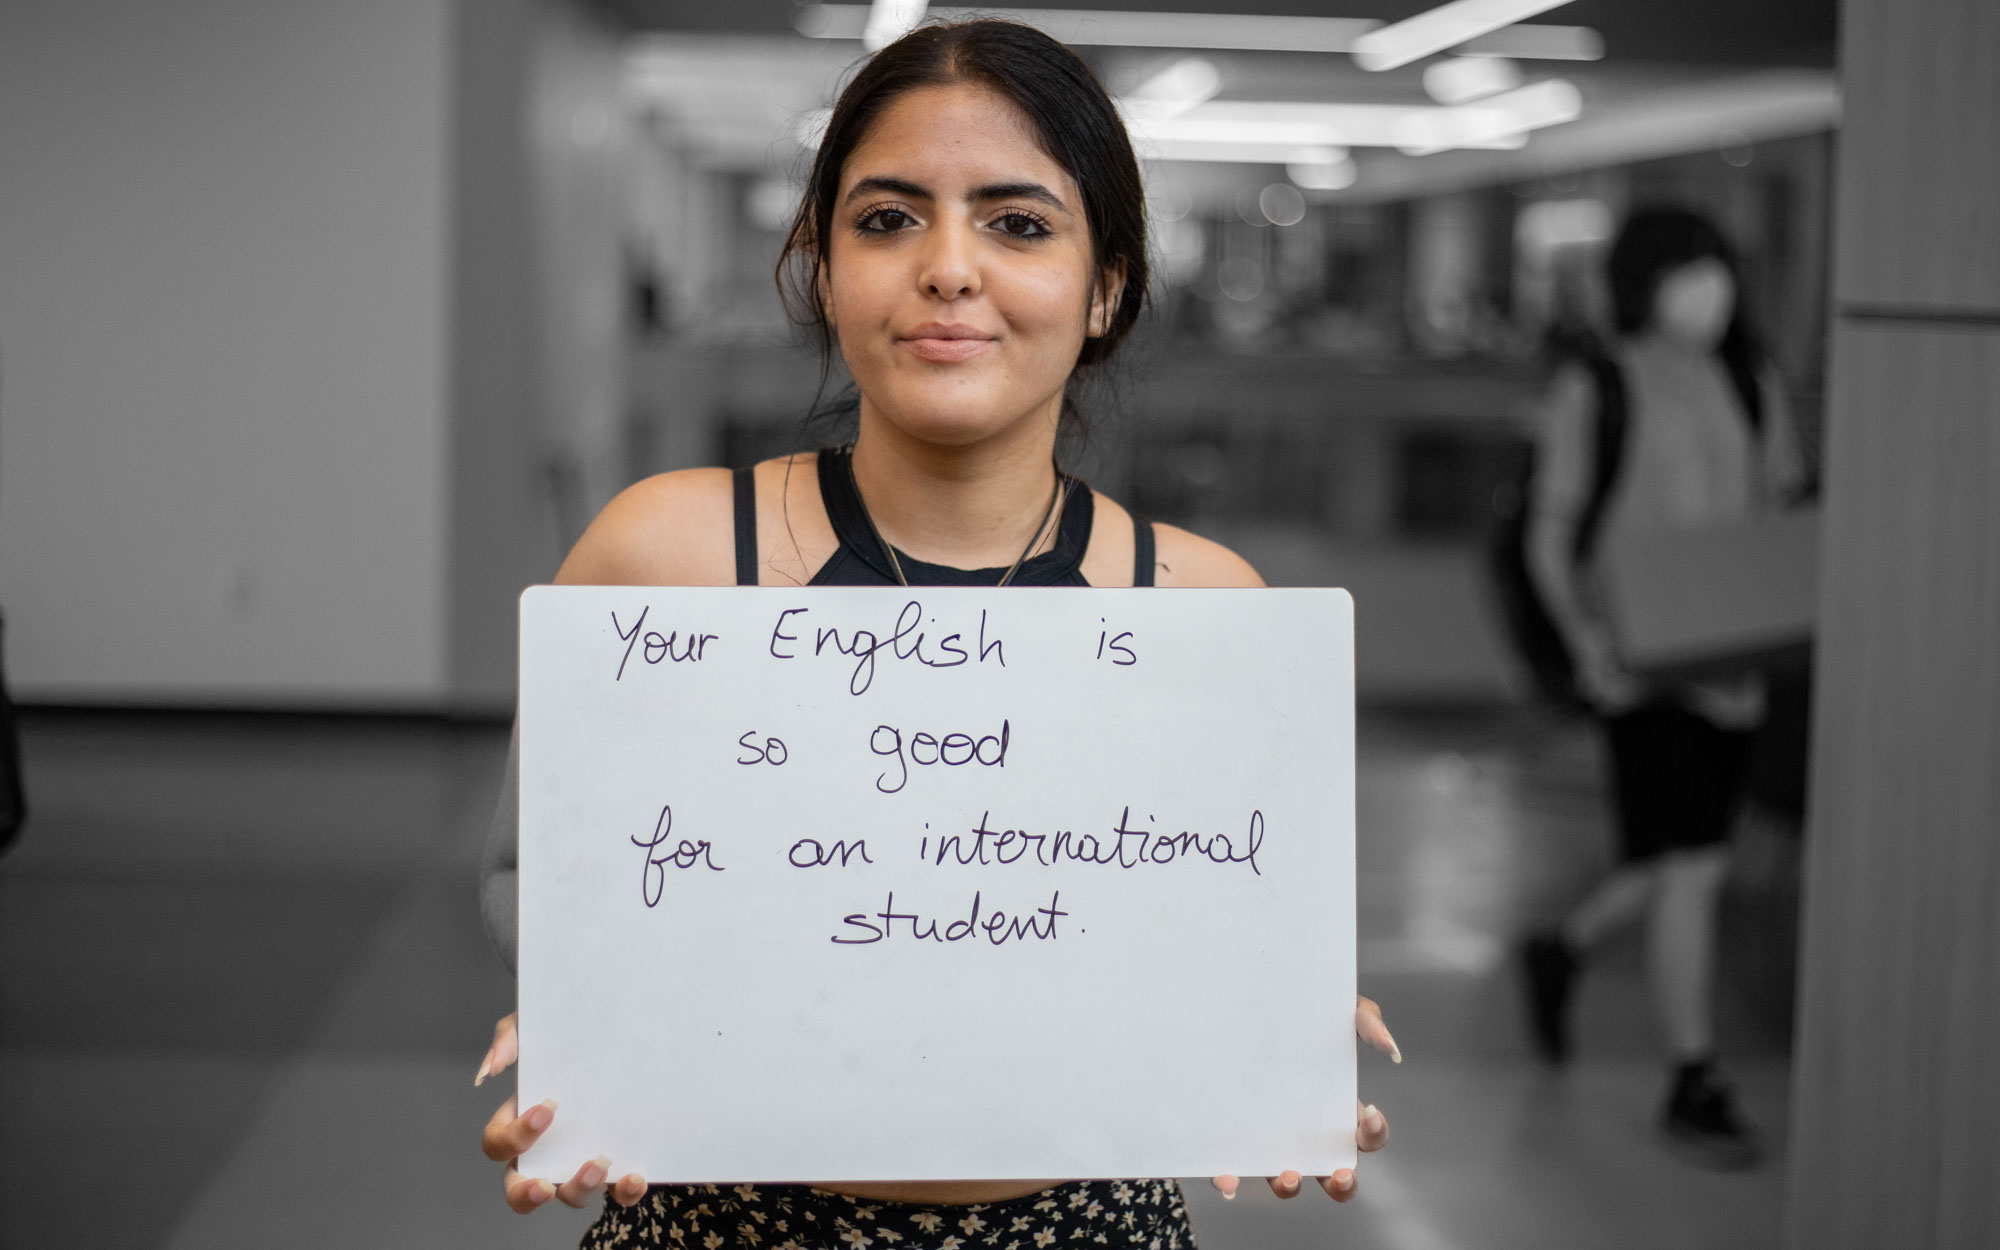 Your English is
so good
for an international
student.